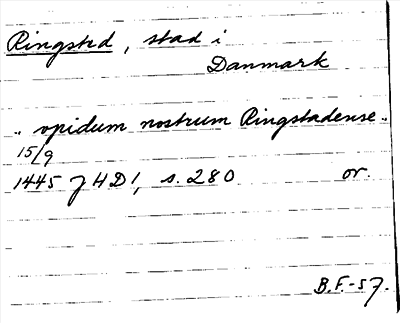 Ringsted, stad i
Danmark
„ opidum nostrum Ringstadense„
15/9
1445 JHD 1, s. 280 or.
B.F.-57.